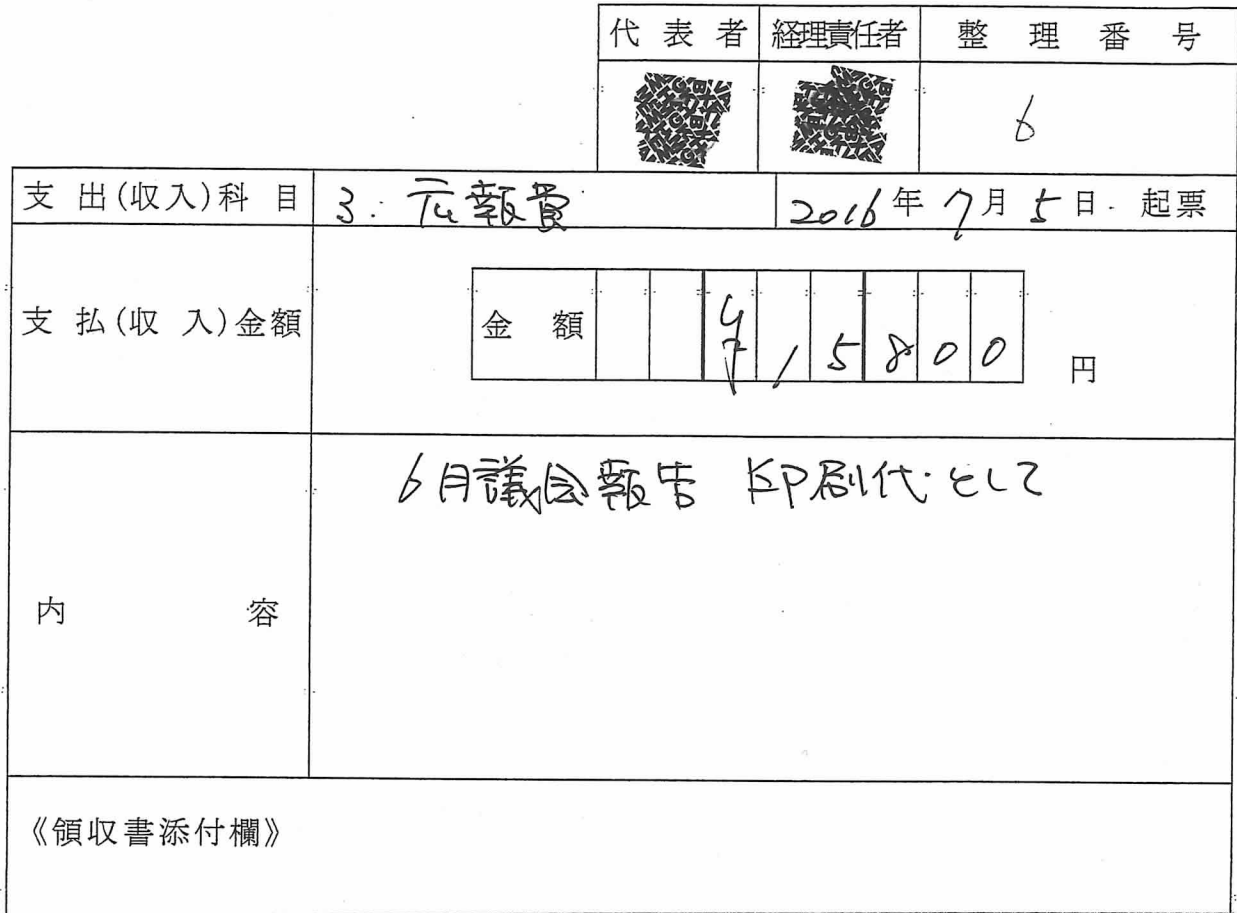 代 表 者 経理責任者 整 理 番 号
6
支 出(収入)科 目 3. 広報費 2016年 7月 5日 起票
支 払(収 入)金額 金 額 ¥15800 円
内 容 6月議会報告 印刷代として
《領収書添付欄》